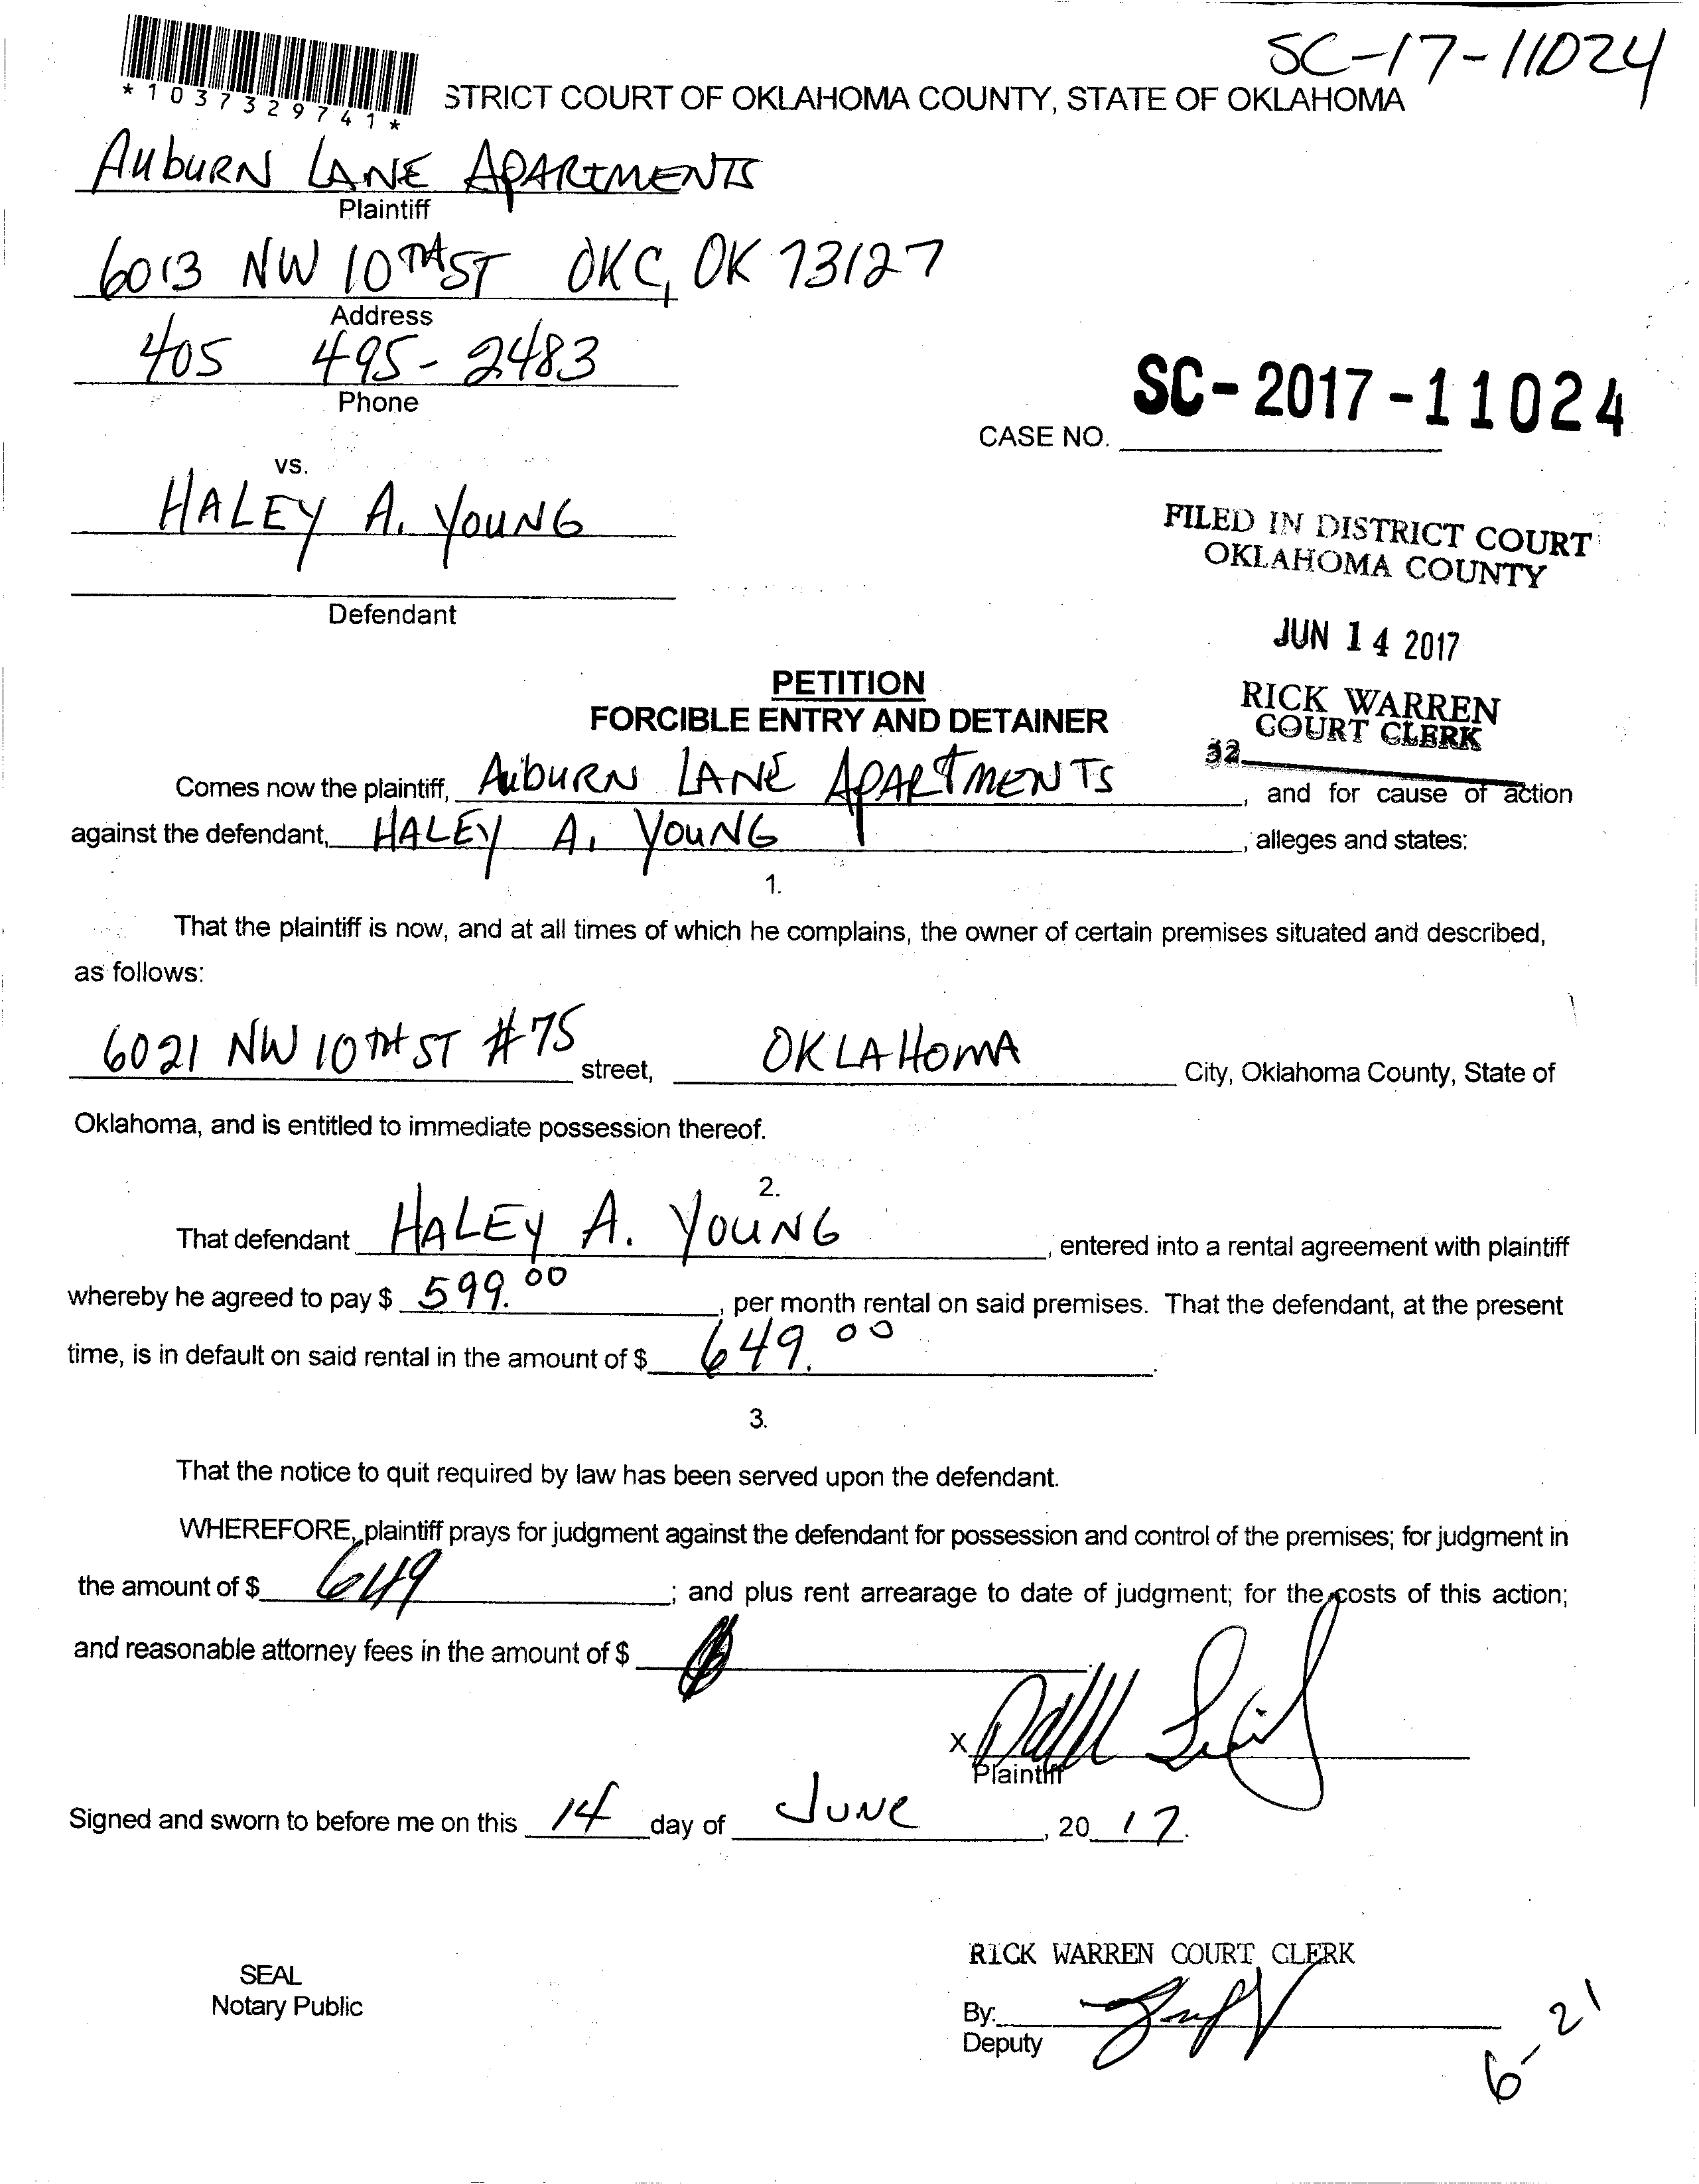 SC-17-11024
*1037329741*
STRICT COURT OF OKLAHOMA COUNTY, STATE OF OKLAHOMA
AUBURN LANE APARTMENTS
Plaintiff
6013 NW 10TH ST OKC, OK 73127
Address
405 495-2483
Phone
CASE NO. SC-2017-11024
vs.
HALEY A. YOUNG
Defendant
FILED IN DISTRICT COURT
OKLAHOMA COUNTY
JUN 14 2017
RICK WARREN
COURT CLERK
32
PETITION
FORCIBLE ENTRY AND DETAINER
Comes now the plaintiff, AUBURN LANE APARTMENTS, and for cause of action
against the defendant, HALEY A. YOUNG, alleges and states:
1.
That the plaintiff is now, and at all times of which he complains, the owner of certain premises situated and described,
as follows:
6021 NW 10TH ST #75 street, OKLAHOMA City, Oklahoma County, State of
Oklahoma, and is entitled to immediate possession thereof.
2.
That defendant HALEY A. YOUNG, entered into a rental agreement with plaintiff
whereby he agreed to pay $ 599.00, per month rental on said premises. That the defendant, at the present
time, is in default on said rental in the amount of $ 649.00.
3.
That the notice to quit required by law has been served upon the defendant.
WHEREFORE, plaintiff prays for judgment against the defendant for possession and control of the premises; for judgment in
the amount of $ 649; and plus rent arrearage to date of judgment; for the costs of this action;
and reasonable attorney fees in the amount of $
X
Plaintiff
Signed and sworn to before me on this 14 day of JUNE, 2017.
RICK WARREN COURT CLERK
SEAL
Notary Public
By:
Deputy
6-21